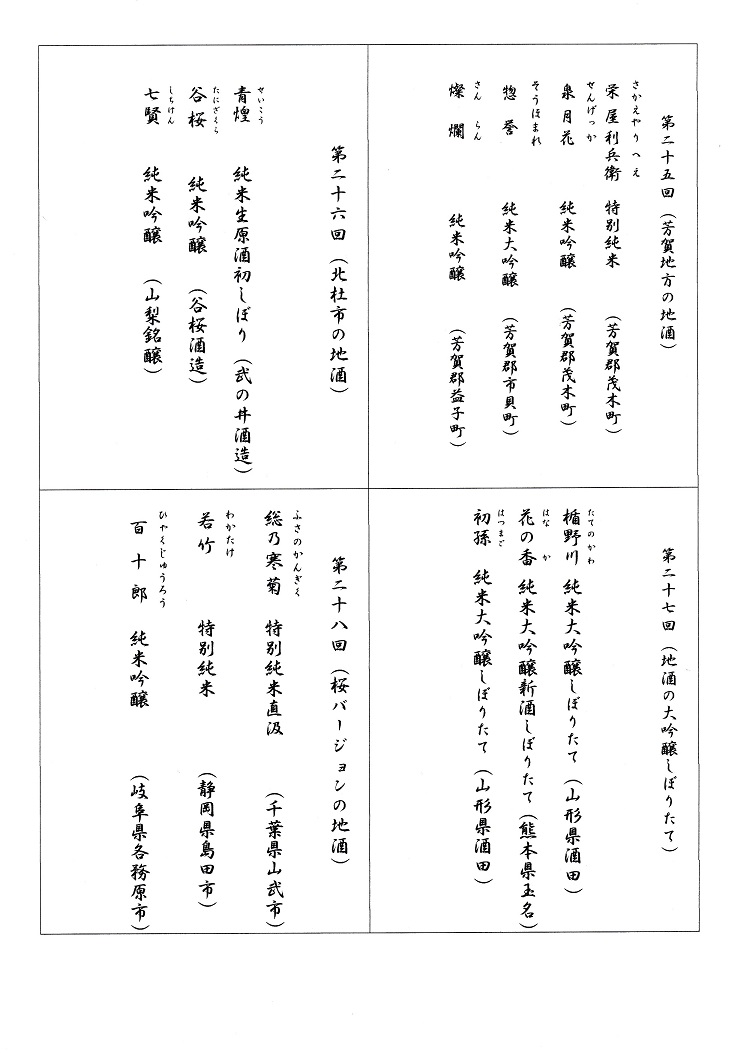 第二十五回（芳賀地方の地酒）
さかえやりへえ
栄屋利兵衛　特別純米　（芳賀郡茂木町）
せんげっか
泉月花　純米吟醸　（芳賀郡茂木町）
そうほまれ
惣誉　純米大吟醸　（芳賀郡市貝町）
さんらん
燦爛　純米吟醸　（芳賀郡益子町）
第二十六回（北杜市の地酒）
せいこう
青煌　純米生原酒初しぼり（武の井酒造）
たにざくら
谷桜　純米吟醸　（谷桜酒造）
しちけん
七賢　純米吟醸　（山梨銘醸）
第二十七回（地酒の大吟醸しぼりたて）
たてのかわ
楯野川　純米大吟醸しぼりたて（山形県酒田）
はな　か
花の香　純米大吟醸新酒しぼりたて（熊本県玉名）
はつまご
初孫　純米大吟醸しぼりたて（山形県酒田）
第二十八回（桜バージョンの地酒）
ふさのかんぎく
総乃寒菊　特別純米直汲　（千葉県山武市）
わかたけ
若竹　特別純米　（静岡県島田市）
ひゃくじゅうろう
百十郎　純米吟醸　（岐阜県各務原市）